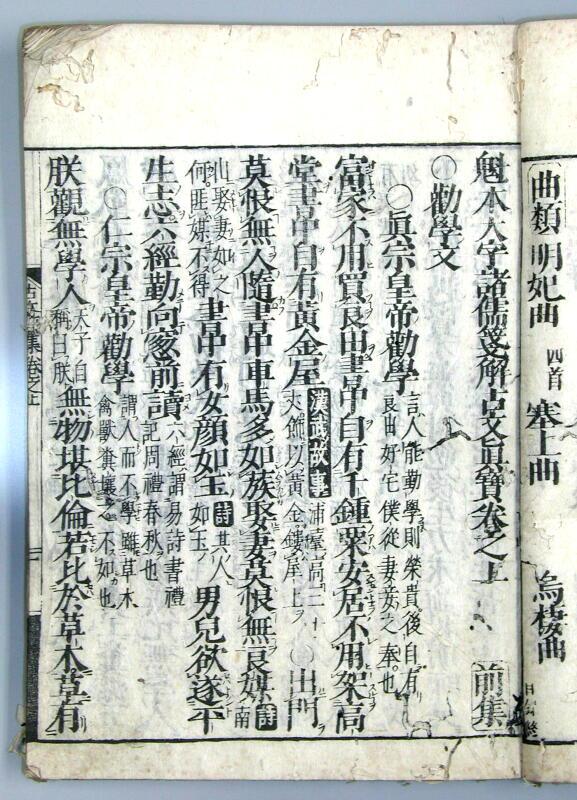 曲類 明妃曲 四首 塞上曲 烏棲曲
魁本大字諸儒箋解古文眞寶卷之上 前集
〇勸學文
〇眞宗皇帝勸學 言人能勤學則榮貴後自有良田好宅僕從妻妾之奉也
富家不用買良田書中自有千鍾粟安居不用架高
堂書中自有黃金屋 漢武故事 〇出門
莫恨無人隨書中車馬多如族娶妻莫恨無良媒 詩南
山娶妻如之何匪媒不得 書中有女顔如玉 詩其人如玉 男兒欲遂平
生志六經勤向窓前讀 六經謂易詩書禮記周禮春秋也
〇仁宗皇帝勸學 謂人而不學雖草木禽獸糞壤之不如也
朕觀無學人 天子自稱曰朕 無物堪比倫若比於草木草有